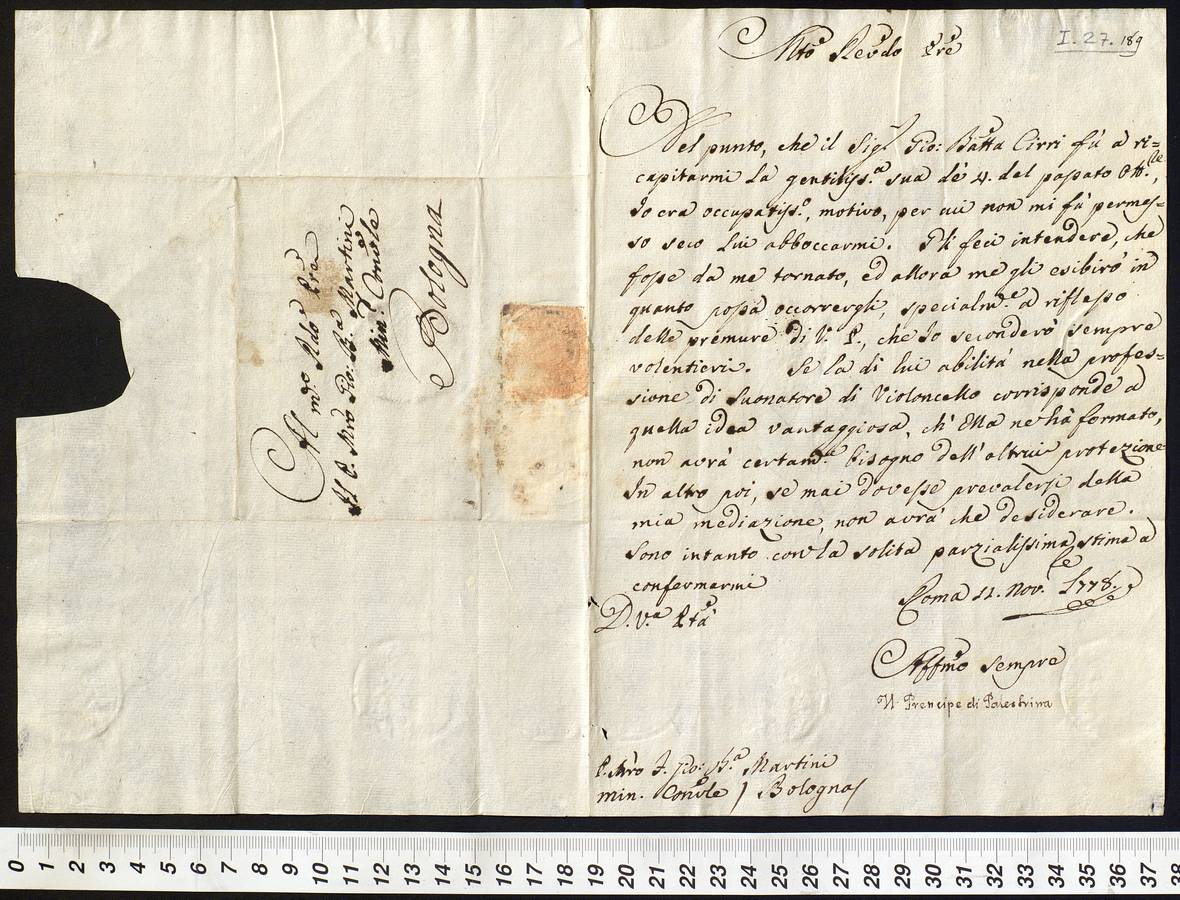 Al
m.ᵗᵒ Rdo Pre
Al P. Mro Gio: Ba Martini
Min: Conv.le
Bologna
I. 27. 189
Mto Revdo Pre
Nel punto, che il Sig.r Gio: Batta Cirri fù à ri=
capitarmi la gentiliss.a sua de' 4. del passato Ott.,
Io era occupatiss.o, motivo, per cui non mi fù permes=
so seco lui abboccarmi. Gli feci intendere, che
fosse da me tornato, ed allora me gli esibirò in
quanto possa occorrergli, specialm.e a riflesso
delle premure di V. P., che Io seconderò sempre
volentieri. Se la di lui abilità nella profes=
sione di Suonatore di Violoncello corrisponde a
quella idea vantaggiosa, ch' Ella ne hà formato,
non avrà certam.e bisogno dell' altrui protezione
In altro poi, se mai dovesse prevalersi della
mia mediazione, non avrà che desiderare.
Sono intanto con la solita parzialissima stima a
confermarmi
Roma 11. Nov.e 1778.
D. V.a Ptà
Affmo sempre
Il Prencipe di Palestrina
P. Mro F. Gio: B.a Martini
min. Convle / Bologna /
0 1 2 3 4 5 6 7 8 9 10 11 12 13 14 15 16 17 18 19 20 21 22 23 24 25 26 27 28 29 30 31 32 33 34 35 36 37 38